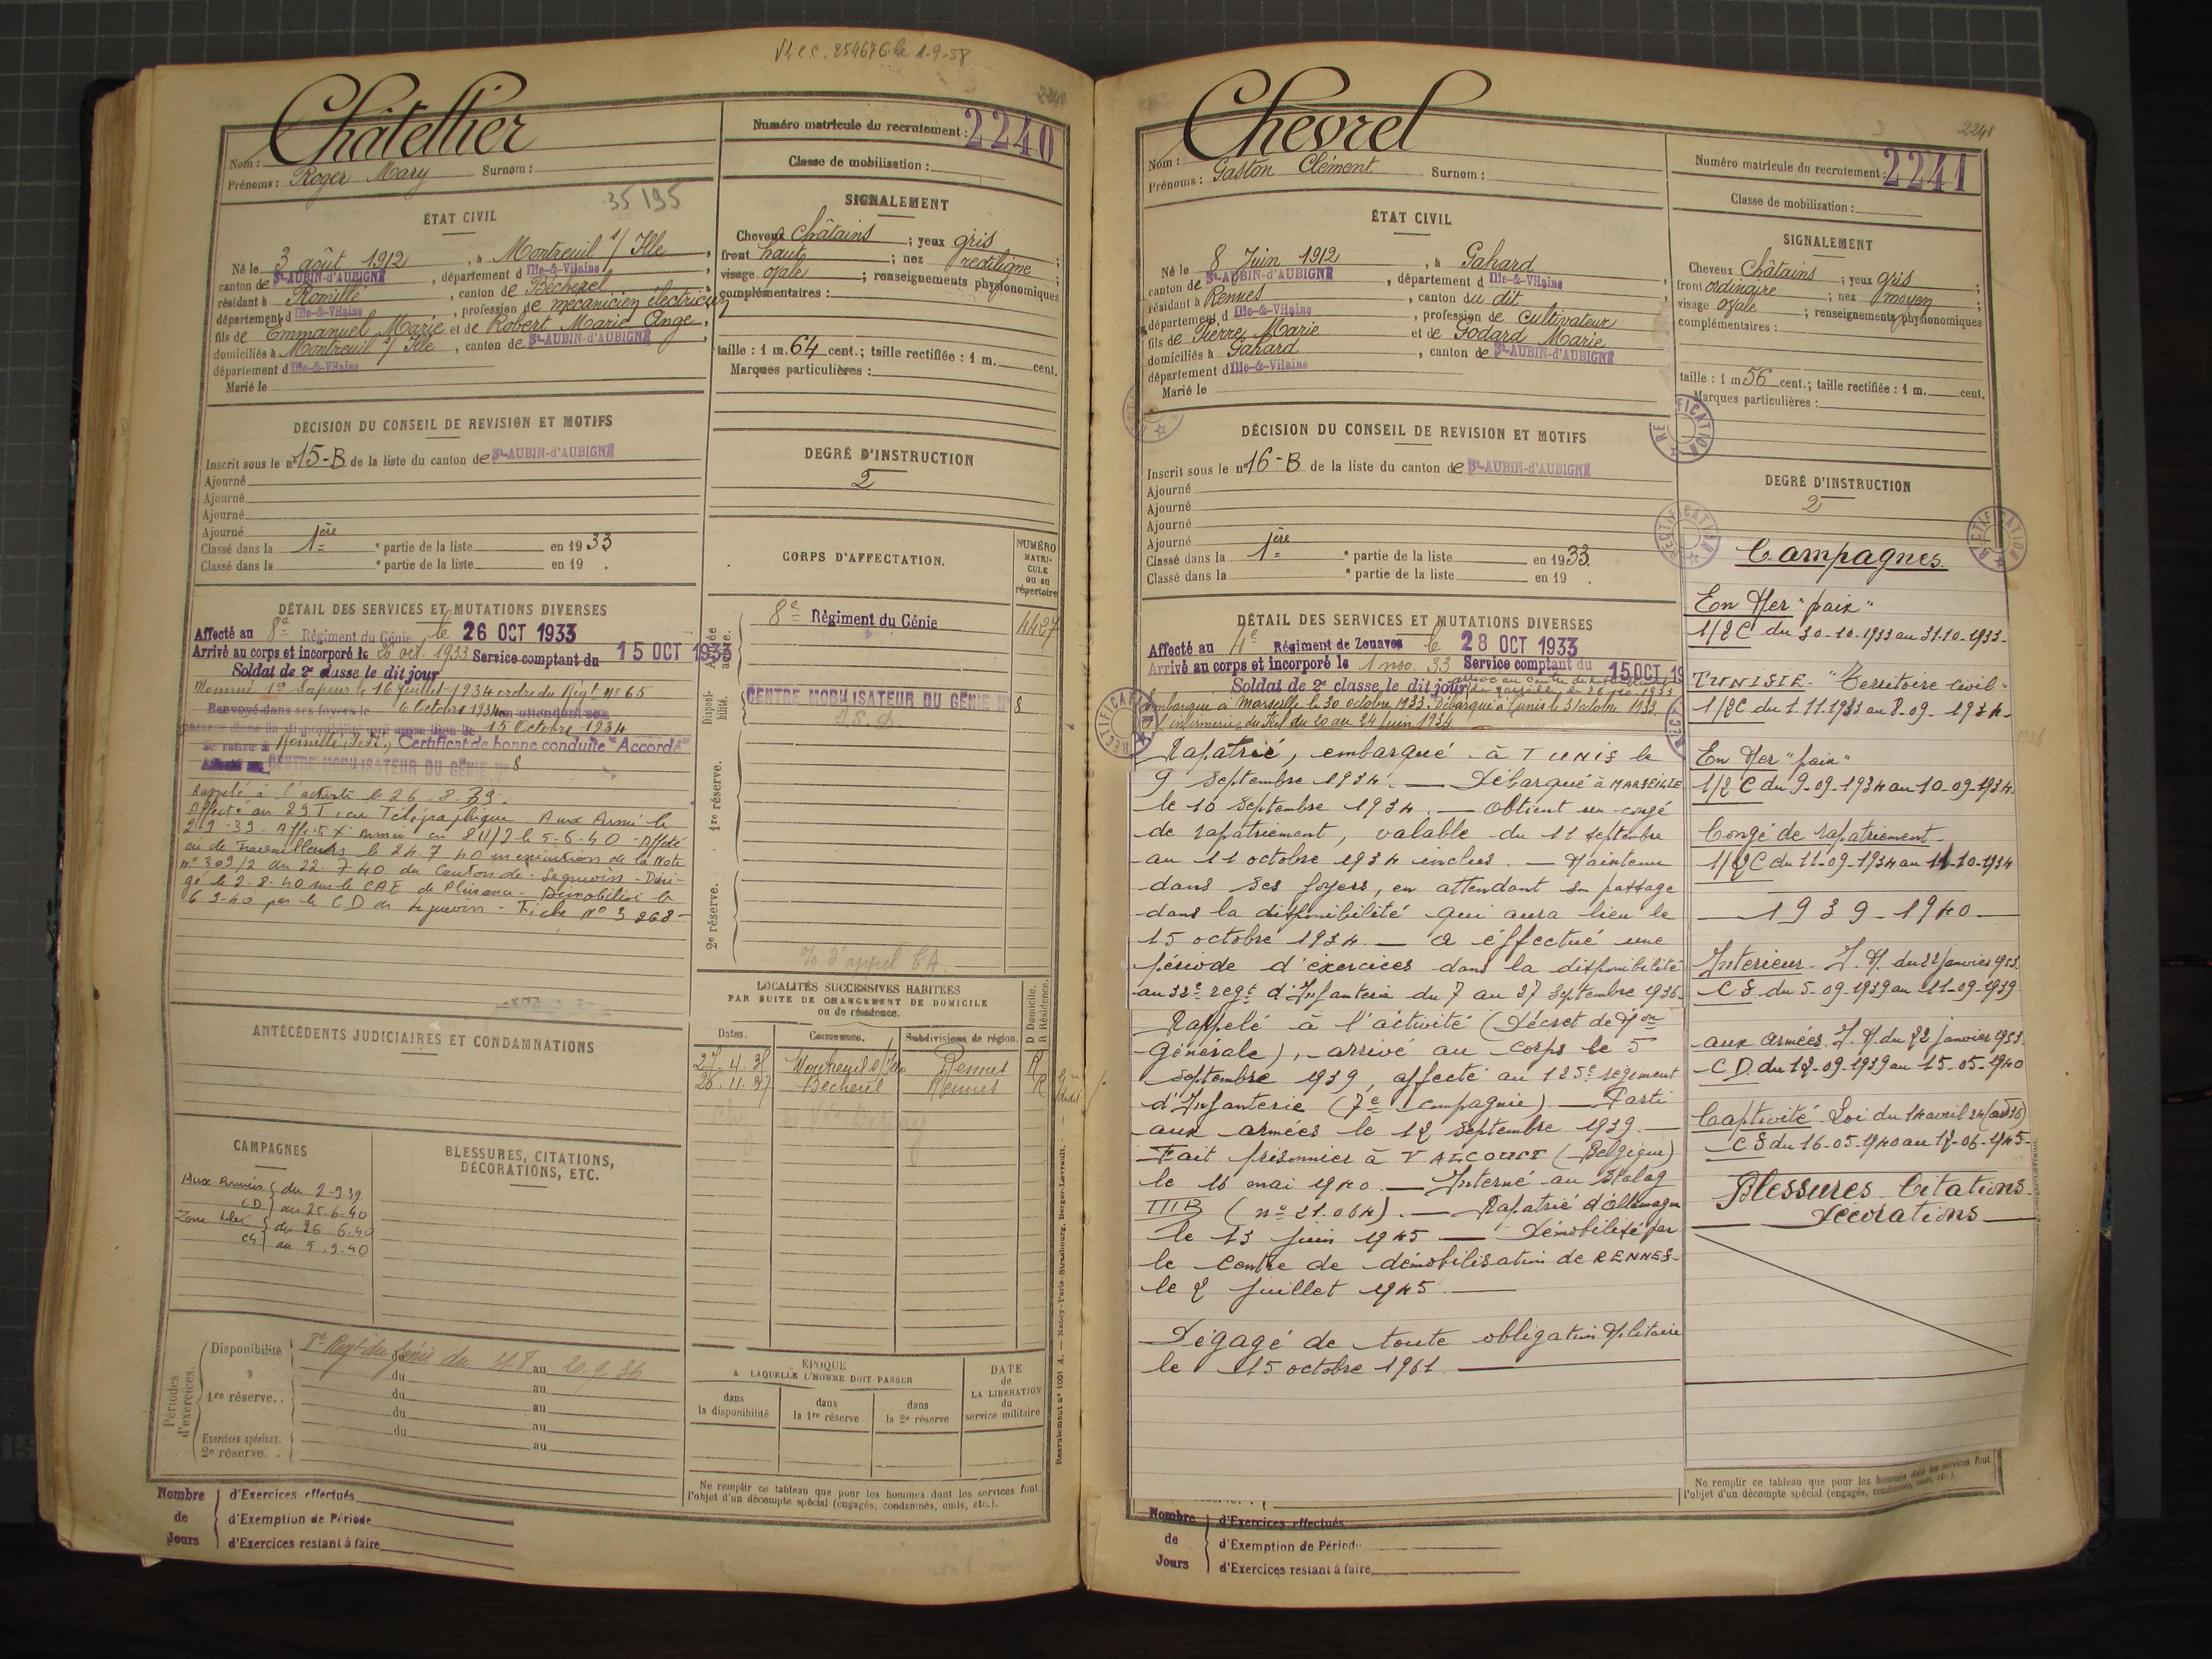 2240
Châtellier
Nom :
Prénoms : Roger Mary Surnom :
Numéro matricule du recrutement : 2240
Classe de mobilisation :
35195
ÉTAT CIVIL
Né le 3 août 1912, à Montreuil s/ Ille,
canton de St-AUBIN-d'AUBIGNÉ, département d Ille-&-Vilaine,
résidant à Romillé, canton de Bécherel
département d Ille-&-Vilaine, profession de mécanicien électricien
fils de Emmanuel Marie et de Robert Marie Ange,
domiciliés à Montreuil s/ Ille, canton de St-AUBIN-d'AUBIGNÉ
département d Ille-&-Vilaine
Marié le
SIGNALEMENT
Cheveux Châtains ; yeux gris ;
front haut ; nez rectiligne ;
visage ovale ; renseignements physionomiques
complémentaires :
taille : 1 m. 64 cent.; taille rectifiée : 1 m. cent.
Marques particulières :
DÉCISION DU CONSEIL DE REVISION ET MOTIFS
Inscrit sous le n° 15-B de la liste du canton de St-AUBIN-d'AUBIGNÉ
Ajourné
Ajourné
Ajourné
Ajourné
Classé dans la 1ère partie de la liste en 1933
Classé dans la e partie de la liste en 19 .
DEGRÉ D'INSTRUCTION
2
DÉTAIL DES SERVICES ET MUTATIONS DIVERSES
Affecté au 8e Régiment du Génie le 26 OCT 1933
Arrivé au corps et incorporé le 26 oct. 1933 Service comptant du 15 OCT 1933
Soldat de 2e classe le dit jour
Nommé 1er Sapeur le 16 juillet 1934 ordre du Régt No 65
Renvoyé dans ses foyers le 6 Octobre 1934 en attendant son
passage dans la disponibilité qui aura lieu le 15 Octobre 1934
Se retire à Romillé, I.&V., Certificat de bonne conduite "Accordé"
CENTRE MOBILISATEUR DU GÉNIE N° 8
Rappelé à l'activité le 26-8-39.
Affecté au 29 T, Cie Télégraphique Aux Armées le
2-9-39. Affecté Xe Armée Cie 811/2 le 5-6-40 - Affecté
Cie de Travailleurs le 24 7 40 en exécution de la Note
n° 309/2 du 22. 7 40 du Canton de Leguevin - Diri-
gé le 2-8-40 sur le CAE de Plaisance - Démobilisé le
6-9-40 par le CD de Leguevin - Fiche N° 3 268-
CORPS D'AFFECTATION.
NUMÉRO
MATRI-
CULE
ou au
répertoire
Armée
active.
8e Régiment du Génie 4427
Disponi-
bilité.
CENTRE MOBILISATEUR DU GÉNIE N° 8
1re réserve.
2e réserve.
ANTÉCÉDENTS JUDICIAIRES ET CONDAMNATIONS
LOCALITÉS SUCCESSIVES HABITÉES
PAR SUITE DE CHANGEMENT DE DOMICILE
ou de résidence.
Dates. Communes. Subdivisions de région. D Domicile. R Résidence.
27. 4. 35 Montreuil s/Ille Rennes R
26. 11. 37 Bécherel Rennes R
CAMPAGNES
Aux Armées du 2-9-39
CD au 25-6-40
du 26.6-40
au 5.9-40
BLESSURES, CITATIONS,
DÉCORATIONS, ETC.
Périodes
d'exercices.
Disponibilité 8e Régt du Génie du 31.8 au 20.9.36
du au
1re réserve. . du au
du au
Exercices spéciaux. du au
2e réserve. . au
ÉPOQUE
A LAQUELLE L'HOMME DOIT PASSER
dans
la disponibilité
dans
la 1re réserve
dans
la 2e réserve
DATE
de
LA LIBÉRATION
du
service militaire
Ne remplir ce tableau que pour les hommes dont les services font
l'objet d'un décompte spécial (engagés, condamnés, omis, etc.).
Recrutement n° 1001 A. — Nancy-Paris-Strasbourg, Berger-Levrault.
Nombre
de
Jours
d'Exercices effectués
d'Exemption de Période
d'Exercices restant à faire
2241
Chevrel
Nom :
Prénoms : Gaston Clément Surnom :
Numéro matricule du recrutement : 2241
Classe de mobilisation :
ÉTAT CIVIL
Né le 8 Juin 1912, à Gahard
canton de St-AUBIN-d'AUBIGNÉ, département d Ille-&-Vilaine,
résidant à Rennes, canton du dit
département d Ille-&-Vilaine, profession de cultivateur
fils de Pierre Marie et de Godard Marie
domiciliés à Gahard, canton de St-AUBIN-d'AUBIGNÉ
département d Ille-&-Vilaine
Marié le
SIGNALEMENT
Cheveux Châtains ; yeux gris ;
front ordinaire ; nez moyen ;
visage ovale ; renseignements physionomiques
complémentaires :
taille : 1 m 56 cent.; taille rectifiée : 1 m. cent.
Marques particulières :
RECTIFICATION
DÉCISION DU CONSEIL DE REVISION ET MOTIFS
Inscrit sous le n° 16-B de la liste du canton de St-AUBIN-d'AUBIGNÉ
Ajourné
Ajourné
Ajourné
Ajourné
Classé dans la 1ère partie de la liste en 1933.
Classé dans la e partie de la liste en 19 .
DEGRÉ D'INSTRUCTION
2
RECTIFICATION
RECTIFICATION
DÉTAIL DES SERVICES ET MUTATIONS DIVERSES
Affecté au 4e Régiment de Zouaves le 28 OCT 1933
Arrivé au corps et incorporé le 1 nov. 33 Service comptant du 15 OCT 19
Soldat de 2e classe le dit jour
Embarqué à Marseille le 30 octobre 1933. Débarqué à Tunis le 31 octobre 1933.
infirmerie du Kef du 20 au 24 juin 1934
RECTIFICATION
Rapatrié, embarqué à TUNIS le
9 septembre 1934. — Débarqué à MARSEILLE
le 10 septembre 1934. — Obtient un congé
de rapatriement, valable du 11 septembre
au 11 octobre 1934 inclus. — Maintenu
dans ses foyers, en attendant son passage
dans la disponibilité qui aura lieu le
15 octobre 1934. — a éffectué une
période d'éxercices dans la disponibilité
au 32e regt d'Infanterie du 7 au 27 Septembre 1936.
Rappelé à l'activité (Décret de Mon
Générale), arrivé au corps le 5
septembre 1939, affecté au 125e régiment
d'Infanterie (7e compagnie) — Parti
aux armées le 12 septembre 1939. —
Fait prisonnier à VALCOURT (Belgique)
le 16 mai 1940. — Interné au Stalag
III B (n° 21.064). — Rapatrié d'Allemagne
le 13 juin 1945 — Démobilisé par
le Centre de démobilisation de RENNES-
le 2 juillet 1945. —
Dégagé de toute obligation Militaire
le 15 octobre 1961. —
Campagnes.
En Mer "paix"
1/2 C du 30-10-1933 au 31-10-1933-
TUNISIE - "Territoire Civil"
1/2C du 1-11-1933 au 8-09-1934-
En Mer "paix"
1/2 C du 9-09-1934 au 10-09-1934.
Congé de rapatriement-
1/2C du 11-09-1934 au 11-10-1934
— 1939-1940 —
Interieur - I.M. du 22 janvier 1953.
C S du 5-09-1939 au 11-09-1939
aux armées. I.M. du 22 janvier 1953.
C D du 12-09-1939 au 15-05-1940
Captivité Loi du 14 avril 24 (art 36)
C S du 16-05-1940 au 12-06-1945-
Blessures - Citations
Décorations —
Ne remplir ce tableau que pour les hommes dont les services font
l'objet d'un décompte spécial (engagés, condamnés, omis, etc.).
Nombre
de
Jours
d'Exercices effectués
d'Exemption de Période
d'Exercices restant à faire